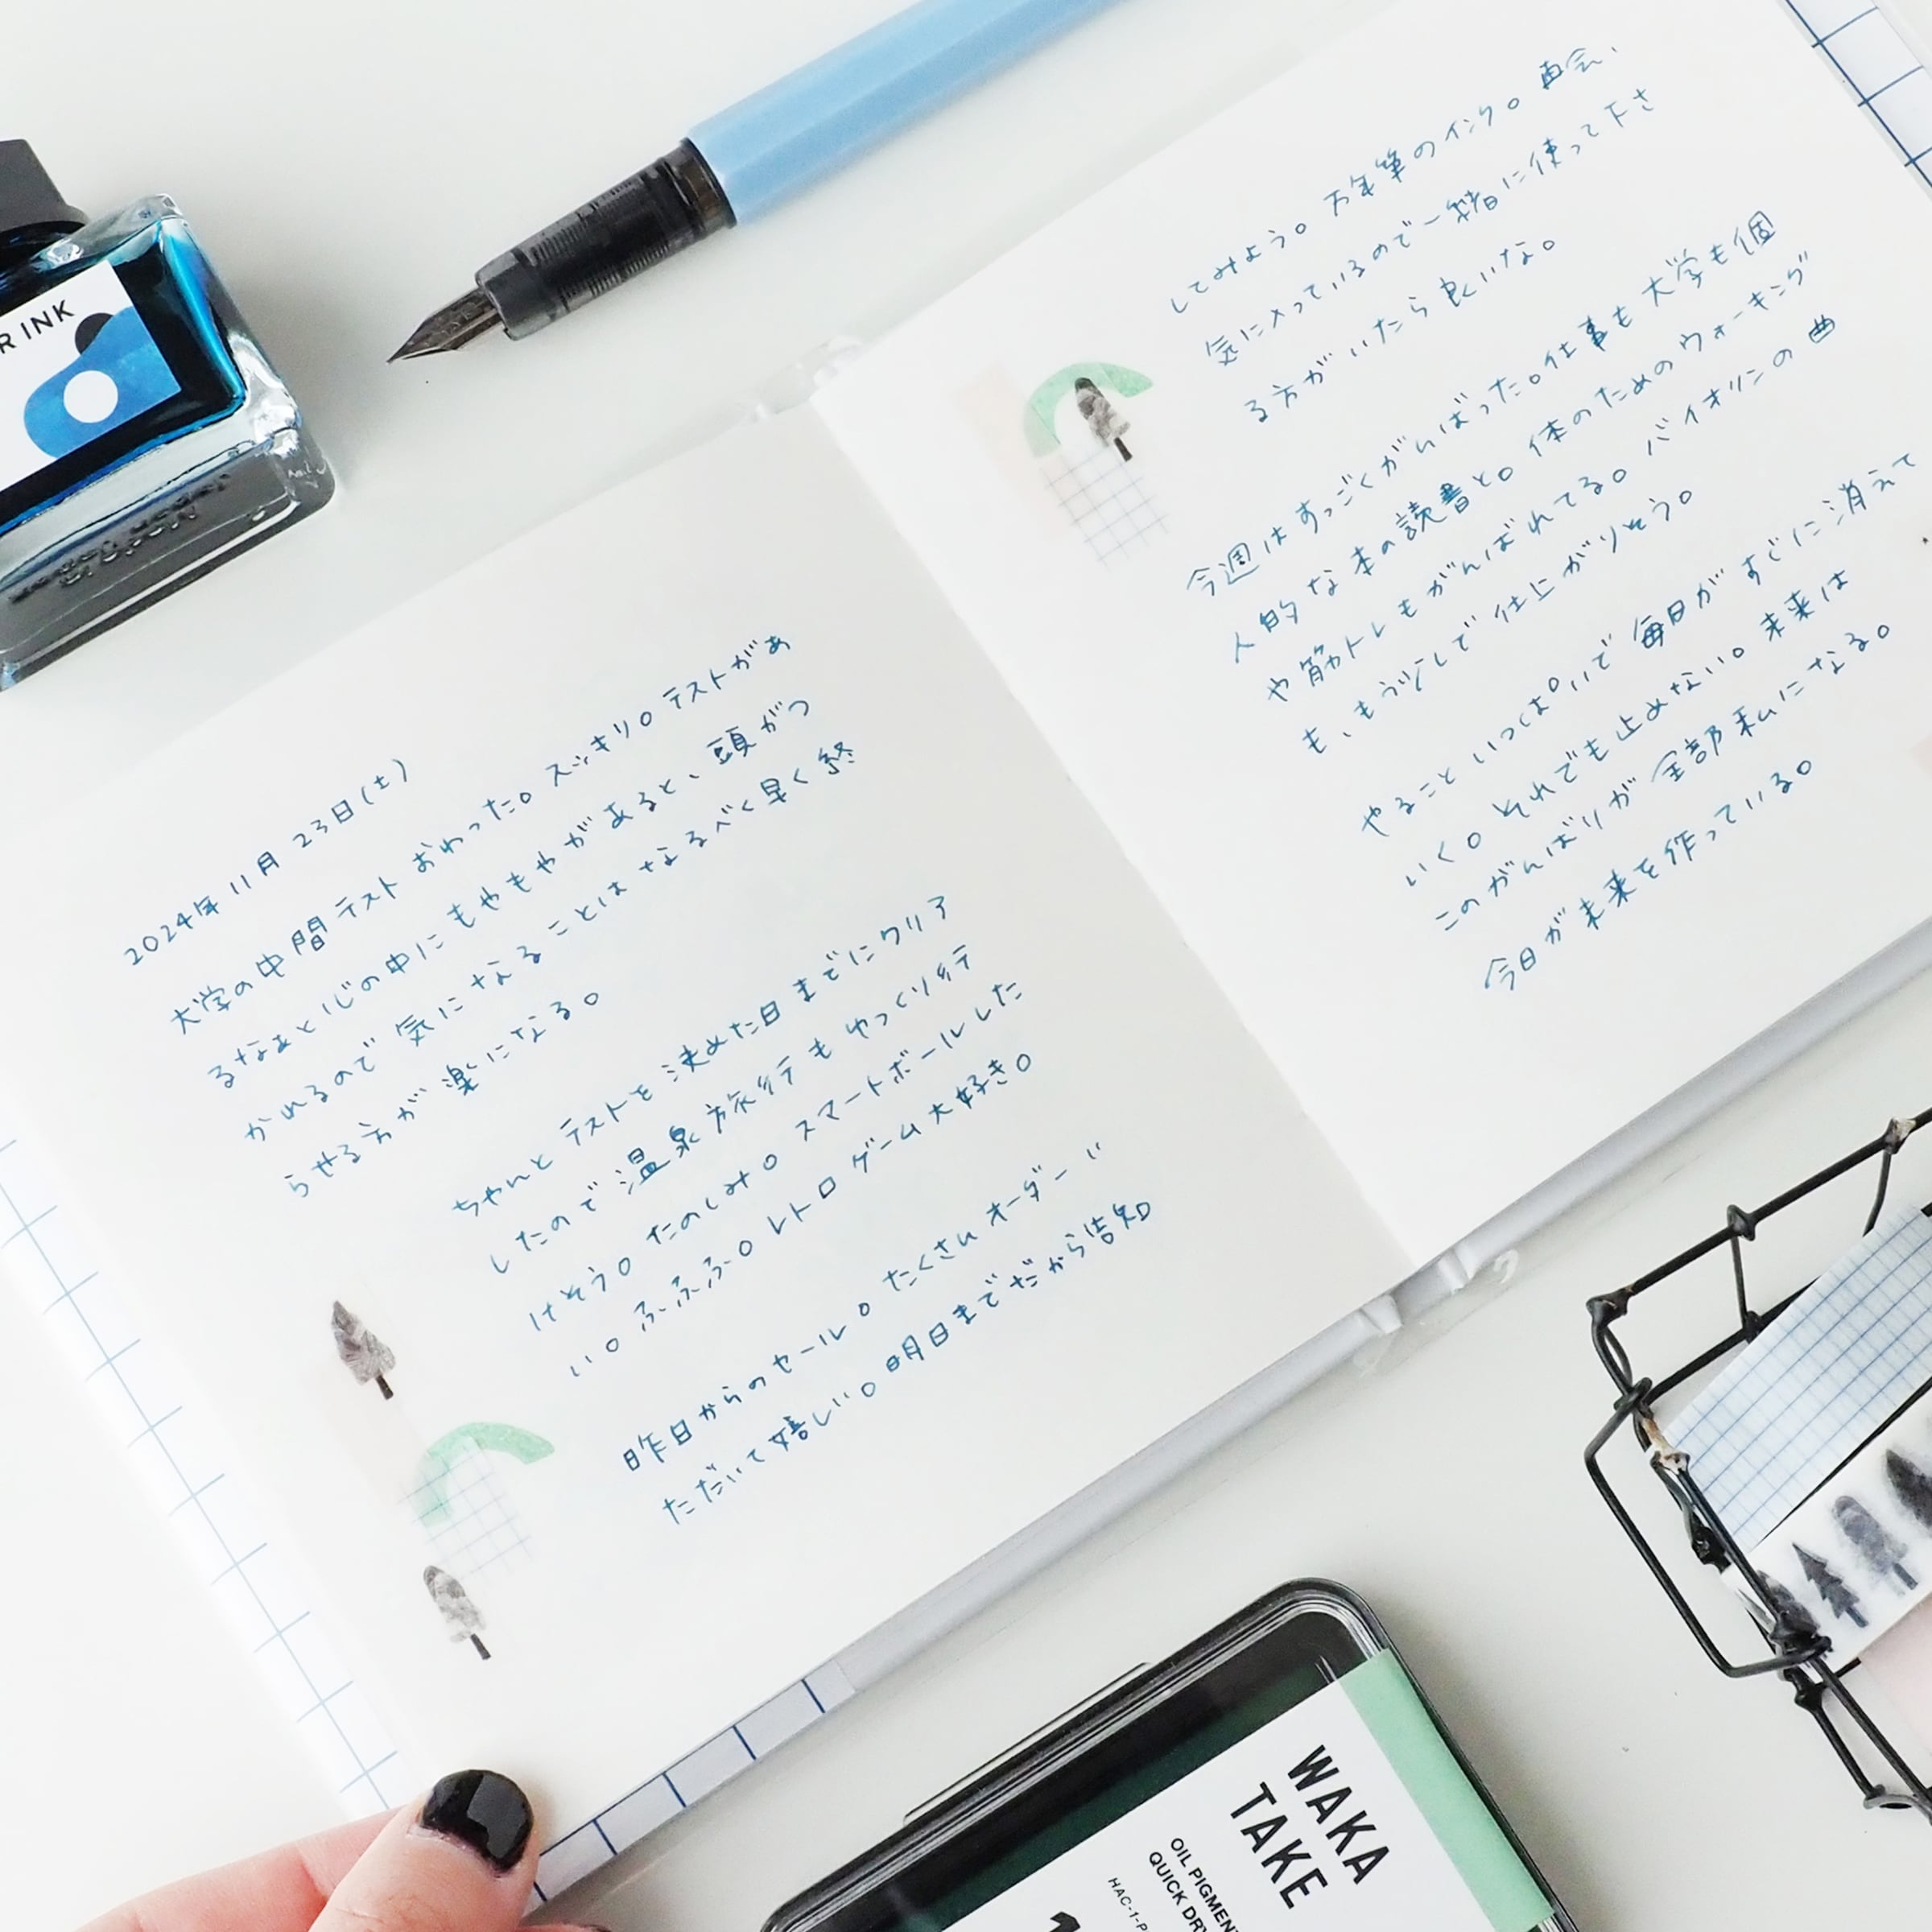 2024年11月23日(土)
大学の中間テストおわった。スッキリ。テストがあ
るなぁと心の中にもやもやがあると、頭がつ
かれるので気になることはなるべく早く終
らせる方が楽になる。
ちゃんとテストを決めた日までにクリア
したので温泉旅行もゆっくり行
けそう。たのしみ。スマートボールした
い。ふふふ。レトロゲーム大好き。
昨日からのセール。たくさんオーダーい
ただいて嬉しい。明日までだから告知
してみよう。万年筆のインク。再会、
気に入っているので一緒に使って下さ
る方がいたら良いな。
今週はすっごくがんばった。仕事も大学も個
人的な本の読書と。体のためのウォーキング
や筋トレもがんばれてる。バイオリンの曲
も、もう少しで仕上がりそう。
やること いっぱいで毎日がすぐに消えて
いく。それでも止めない。未来は
このがんばりが全部私になる。
今日が未来を作っている。
R INK
WAKA
TAKE
OIL PIGMEN
QUICK DRY
HAC-1-P